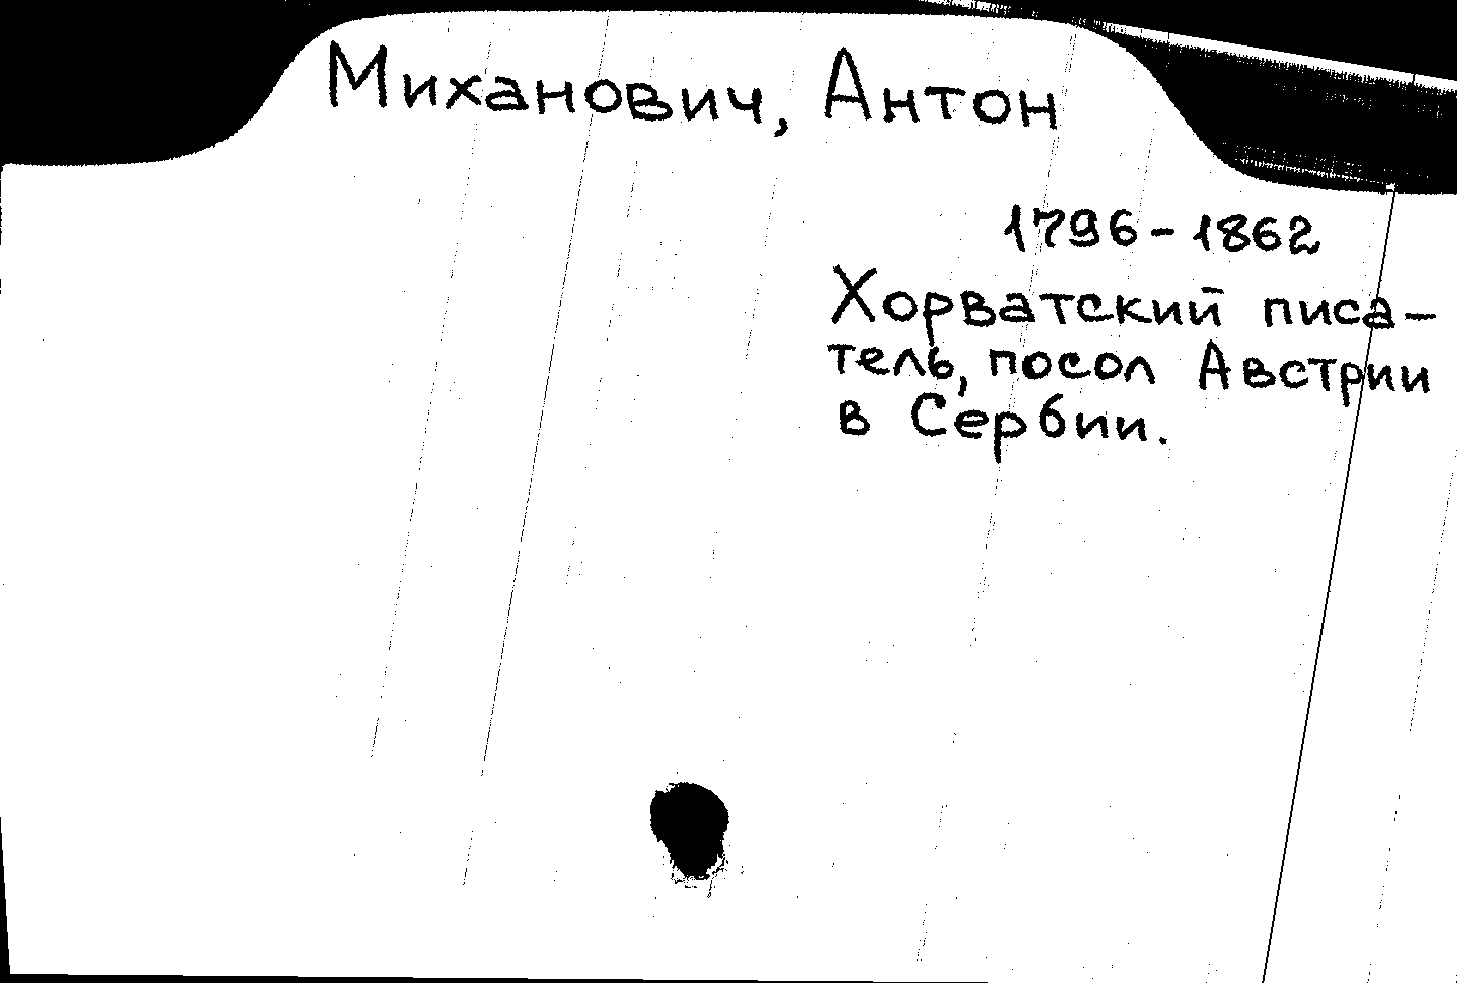 Миханович, Антон
1796-1862
Хорватский писа-
тель, посол Австрии
в Сербии.